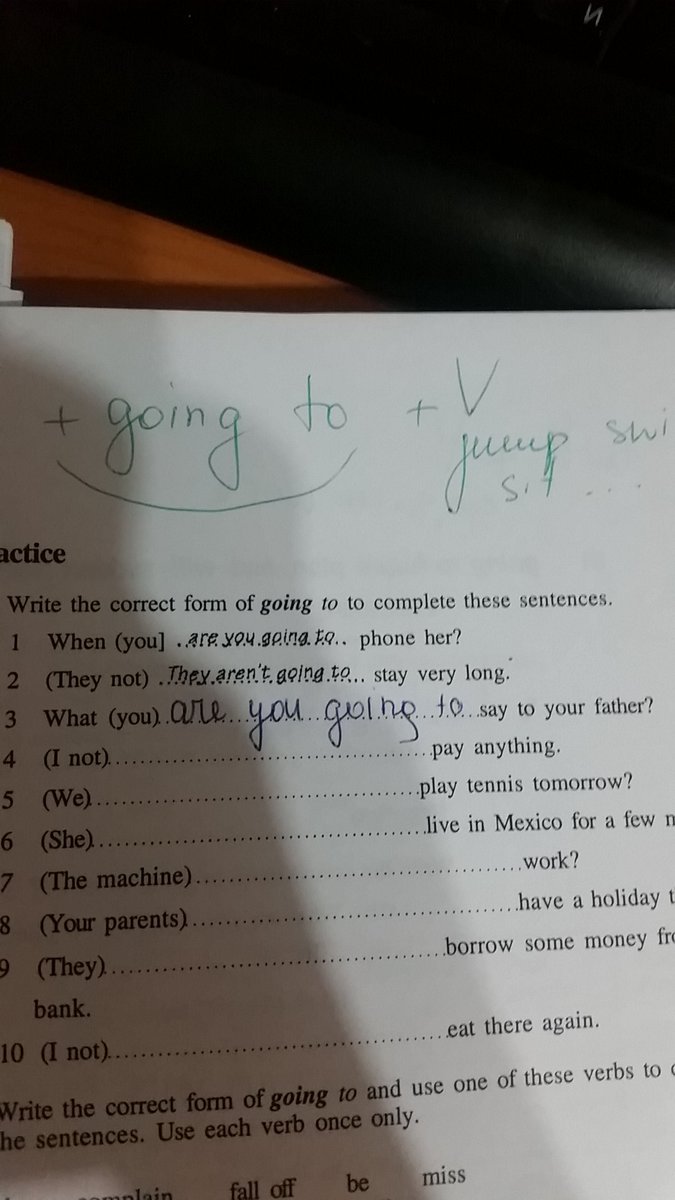 + going to + V
jump swi
sit ...
actice
Write the correct form of going to to complete these sentences.
1 When (you] .are you going to.. phone her?
2 (They not) .They aren't going to... stay very long.
3 What (you) are you going to say to your father?
4 (I not)........................................pay anything.
5 (We)........................................play tennis tomorrow?
6 (She)........................................live in Mexico for a few m
7 (The machine)........................................work?
8 (Your parents)........................................have a holiday t
9 (They)........................................borrow some money fro
bank.
10 (I not)........................................eat there again.
Write the correct form of going to and use one of these verbs to c
he sentences. Use each verb once only.
complain fall off be miss